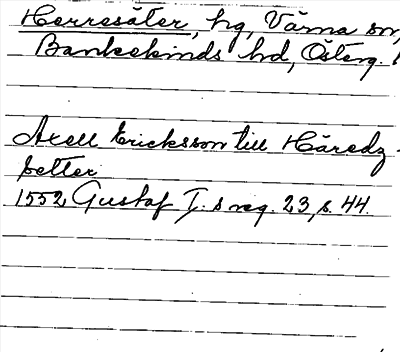 Herresäter, hg, Värna sn,
Bankekinds hd, Österg.
Axell Ericksson till Häredz-
setter
1552 Gustaf I:s reg. 23, s. 44.